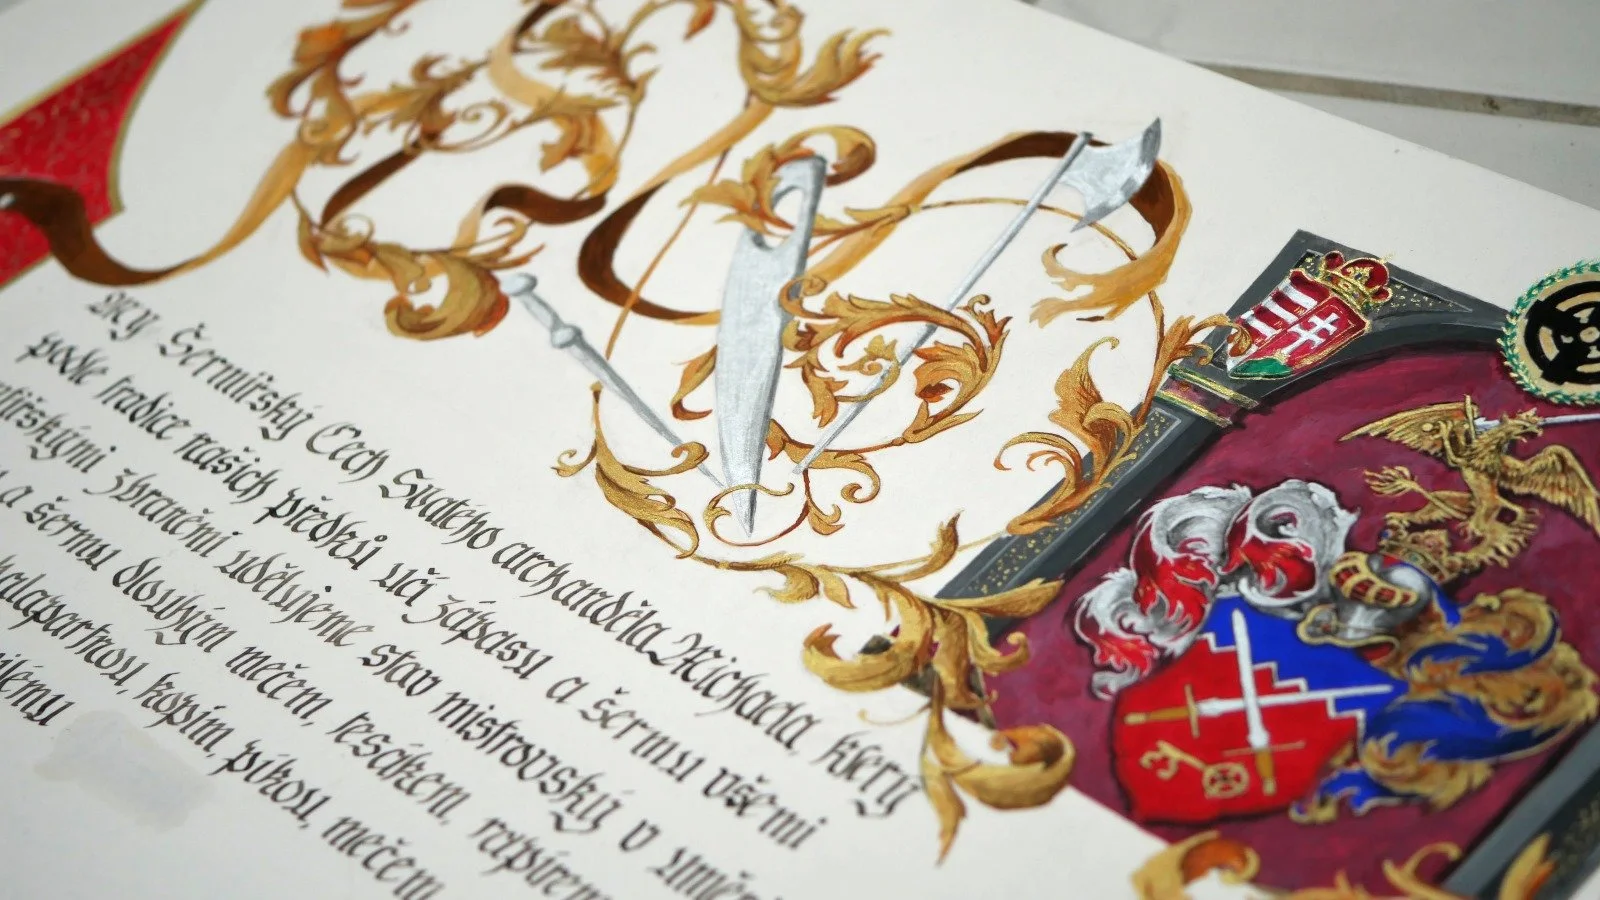 My Šermířský Cech Svatého archanděla Michaela, který
podle tradice našich předků učí zápasu a šermu všemi
šermířskými zbraněmi udělujeme stav mistrovský v umění
a šermu dlouhým mečem, tesákem, rapírem
halapartnou, kopím, píkou, mečem